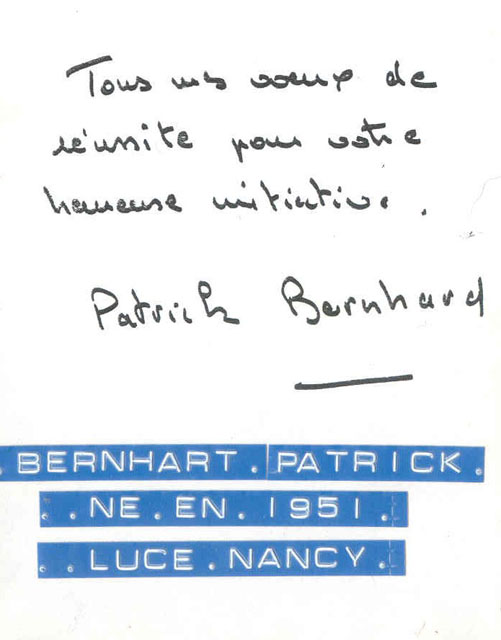 Tous mes voeux de
réussite pour votre
heureuse initiative.
Patrick Bernhard
.BERNHART.PATRICK.
..NE.EN.1951..
..LUCE.NANCY..